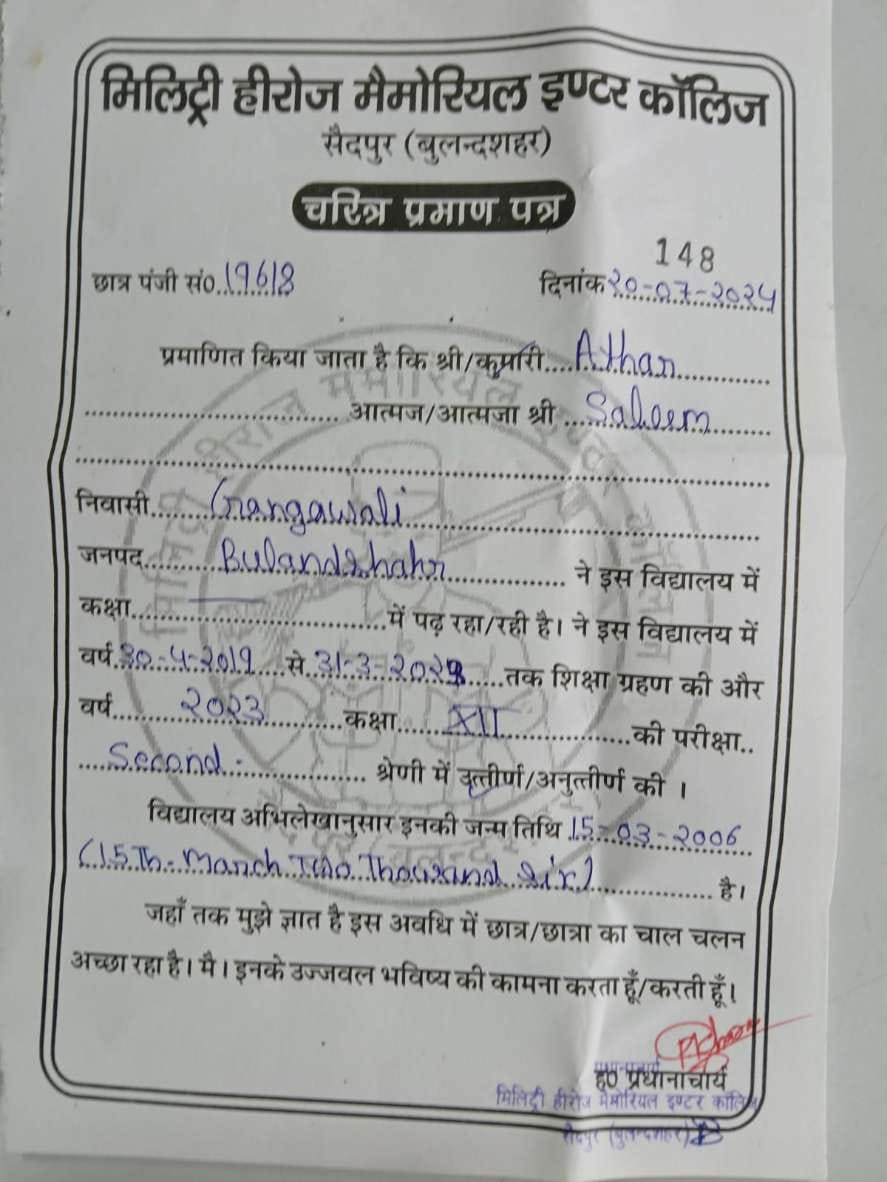 मिलिट्री हीरोज मैमोरियल इण्टर कॉलिज
सैदपुर (बुलन्दशहर)
चरित्र प्रमाण पत्र
148
छात्र पंजी सं०. 19618 दिनांक 20-07-2024
प्रमाणित किया जाता है कि श्री/कुमारी.... Athan
आत्मज/आत्मजा श्री Saleem
निवासी Gangawali
जनपद Bulandshahr ने इस विद्यालय में
कक्षा — में पढ़ रहा/रही है। ने इस विद्यालय में
वर्ष 30-4-2019 से 31-3-202 तक शिक्षा ग्रहण की और
वर्ष 2023 कक्षा XII की परीक्षा..
Second श्रेणी में उत्तीर्ण/अनुत्तीर्ण की ।
विद्यालय अभिलेखानुसार इनकी जन्म तिथि 15-03-2006
(15Th- March Two Thousand Six) है।
जहाँ तक मुझे ज्ञात है इस अवधि में छात्र/छात्रा का चाल चलन
अच्छा रहा है। मै। इनके उज्जवल भविष्य की कामना करता हूँ/करती हूँ।
प्रधानाचार्य
ह० प्रधानाचार्य
मिलिट्री हीरोज मैमोरियल इण्टर कॉलिज
सैदपुर (बुलन्दशहर)